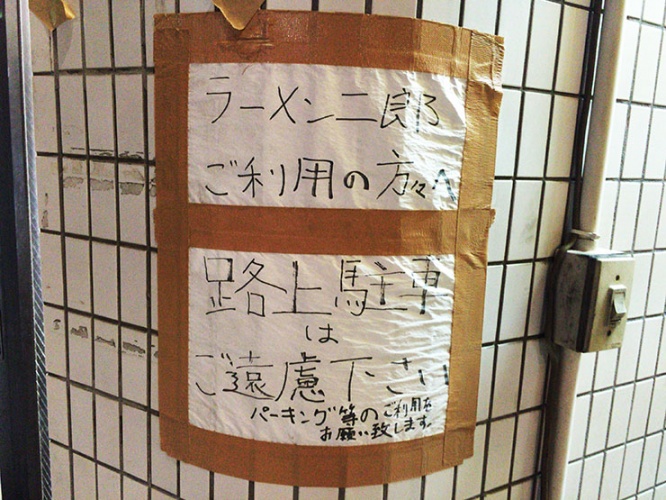 ラーメン二郎
ご利用の方々へ
路上駐車
は
ご遠慮下さい
パーキング等のご利用を
お願い致します。